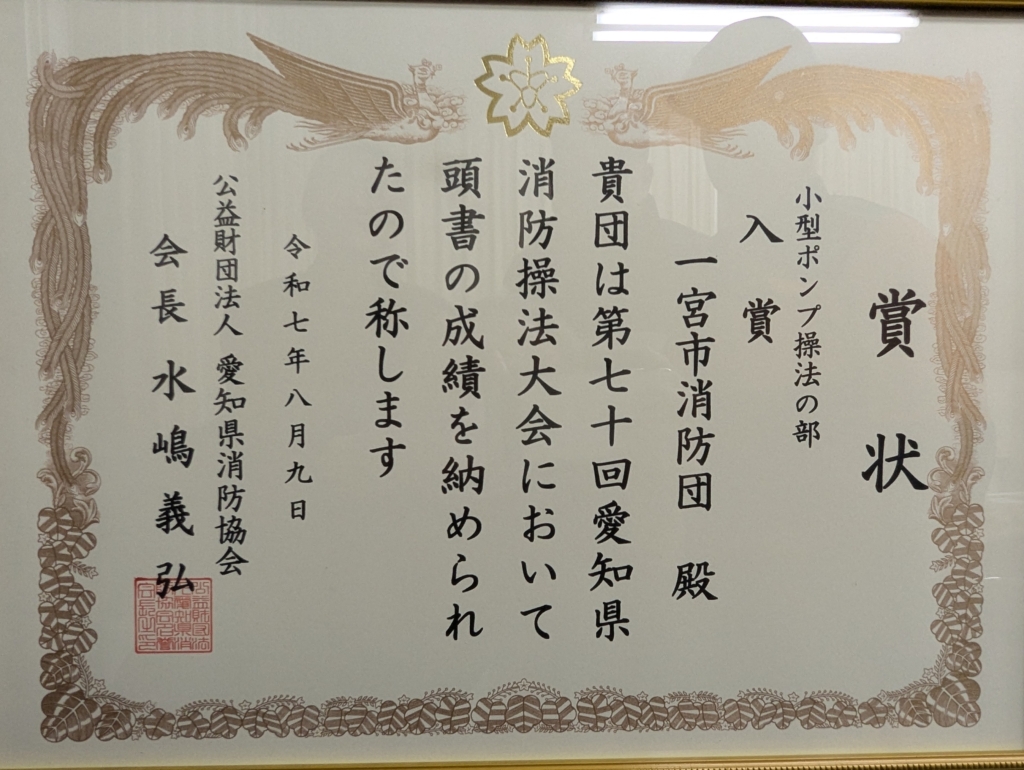 賞状
小型ポンプ操法の部
入賞
一宮市消防団 殿
貴団は第七十回愛知県
消防操法大会において
頭書の成績を納められ
たので称します
令和七年八月九日
公益財団法人 愛知県消防協会
会長 水嶋義弘